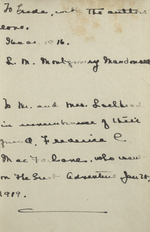 To Freda, with the author's
love.
Xmas 1916.
L. M. Montgomery Macdonald

To Mr. and Mrs.
in remembrance of their
friend, Frederica C.
MacFarlane, who went
on the Great Adventure Jan 25
1919.